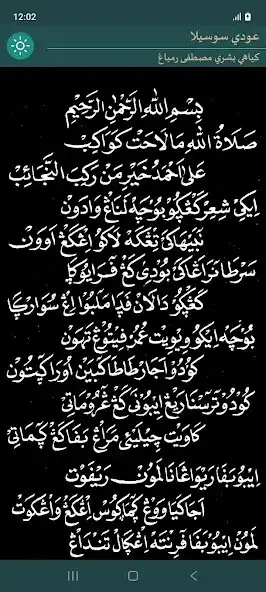 12:02
عودي سوسيلا
كياهي بشري مصطفى رمباغ
بِسْمِ اللهِ الرَّحْمٰنِ الرَّحِيْمِ
صَلَاةُ اللهِ مَا لَاحَتْ كَوَاكِبْ
عَلٰى اَحْمَدْ خَيْرِ مَنْ رَكِبَ النَّجَائِبْ
اِيْكِيْ شِعِرْ كَڠْڮَوْ بَوْچَهْ لَنَاڠْ وَادَوْنْ
نَبْيَهَاكَىْ تِڠْكَهْ لَاكُوْ اِڠْكَڠْ اَوَوْنْ
سَرْطَا نَرَاڠَاكَىْ بُوْدِيْ كَڠْ فْرَايَوْڮَا
كَڠْڮَوْ دَالَانْ فَڎَا مَلَبُوْ اِڠْ سُوَارْڮَا
بَوْچَهْ اِيْكُوْ وِيْوِيْتْ عُمُرْ فِيْتُوْڠْ تَهُوْنْ
كُوْدُوْ اَجَارْ طَاطَا كَبَيْنْ اَوْرَا ڮَتُوْنْ
كُوْدُوْ تْرَسْنَا رِيْڠْ اِيْبُوْنَىْ كَڠْ ڠْرُوْمَاتِيْ
كَاوِيْتْ چِيْلِيْئْ مَرَاڠْ بَفَا كَڠْ ڮَمَاتِيْ
اِيْبُوْ بَفَا رَيْوَاڠَانَا لَمَوْنْ رَيْفَوْتْ
اَجَا كَيَا وَوْڠْ ڮَمَاڮُوْسْ اِڠْكَڠْ وَاڠْكَوْتْ
لَمَوْنْ اِيْبُوْ بَفَا فْرِيْنْتَهْ اِڠْڮَالْ تَنْدَاڠْ